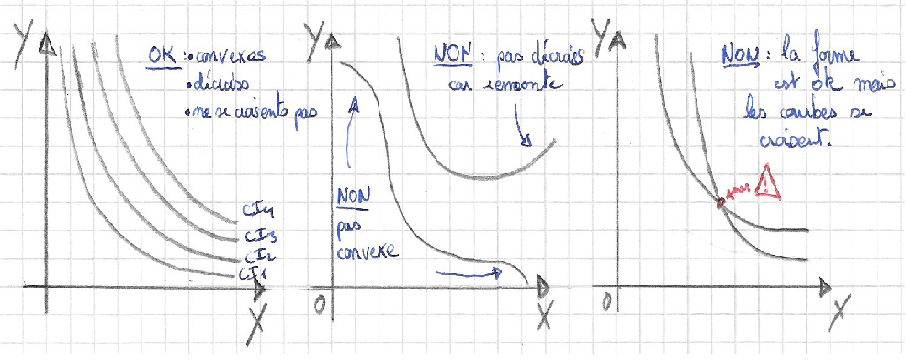 Y
OK : • convexes
• décroiss
• ne se croisent pas
CI4
CI3
CI2
CI1
X
Y
NON : pas décroiss
car remonte
NON
pas
convexe
0
X
Y
NON : la forme
est ok mais
les courbes se
croisent.
!
0
X